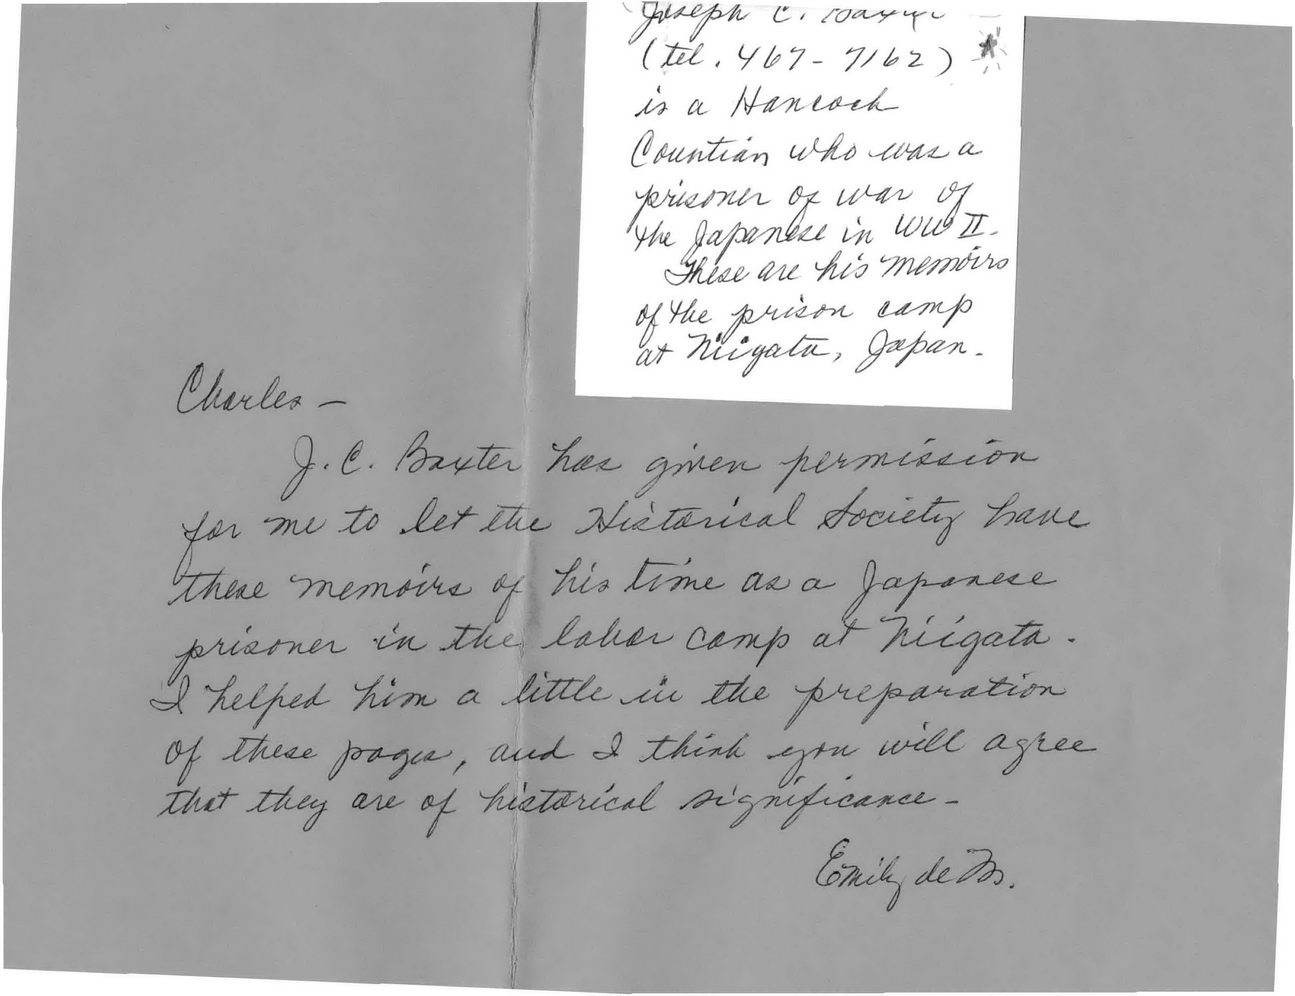 Joseph C. Baxter
(tel. 467-7162)
is a Hancock
Countian who was a
prisoner of war of
the Japanese in WW II.
These are his memoirs
of the prison camp
at Niigata, Japan.
Charles –
J. C. Baxter has given permission
for me to let the Historical Society have
these memoirs of his time as a Japanese
prisoner in the labor camp at Niigata.
I helped him a little in the preparation
of these pages, and I think you will agree
that they are of historical significance –
Emily de M.